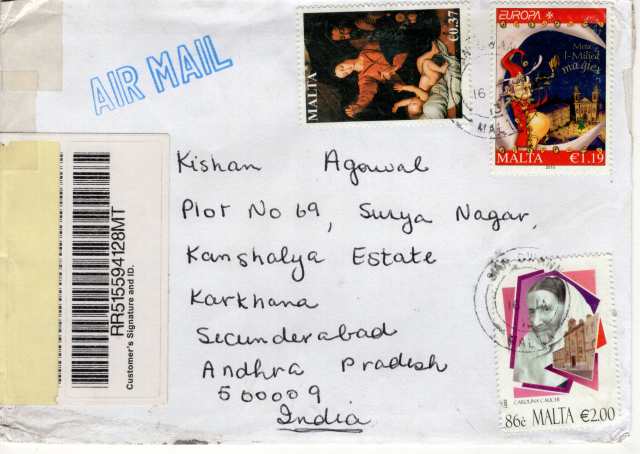 AIR MAIL
MALTA
€0.37
EUROPA
Meta l-Milied
magiex
MALTA €1.19
RR515594128MT
Customer's Signature and ID.
Kishan Agarwal
Plot No 69, Surya Nagar,
Kanshalya Estate
Karkhana
Secunderabad
Andhra Pradesh
500009
India
CAROLINA CAUCHI
86c MALTA €2.00